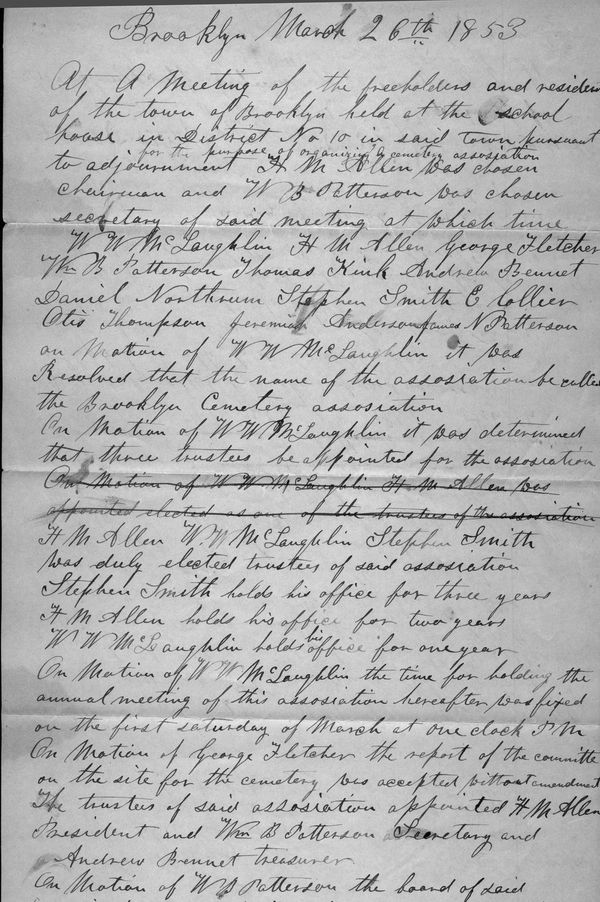 Brooklyn March 26th 1853
At A Meeting of the freeholders and residen
of the town of Brooklyn held at the school
house in District No 10 in said town pursuant
for the purpose of organizing a cemetery assosiation
to adjournment H M Allen was chosen
chairman and W B Patterson was chosen
secretary of said meeting at which time
W W McLaughlin H M Allen George Fletcher
Wm B Patterson Thomas Kirk Andrew Bennet
Daniel Northrum Stephen Smith E Collier
Otis Thompson Jeremiah Anderson James N Patterson
on Motion of W W McLaughlin it was
Resolved that the name of the assosiation be called
the Brooklyn Cemetery assosiation
On Motion of W W McLaughlin it was determined
that three trustees be appointed for the assosiation
On Motion of W W McLaughlin H M Allen was
appointed elected as one of the trustees of the assosiation
H M Allen W. W McLaughlin Stephen Smith
was duly elected trustees of said assosiation
Stephen Smith holds his office for three years
H M Allen holds his office for two years
W W McLaughlin holds his office for one year
On Motion of W W McLaughlin the time for holding the
annual meeting of this assosiation hereafter was fixed
on the first saturday of March at one clock P M
On Motion of George Fletcher the report of the committe
on the site for the cemetery was accepted without amendment
The trustees of said assosiation appointed H M Allen
President and Wm B Patterson Secretary and
Andrew Bennet treasurer
On Motion of W B Patterson the board of said